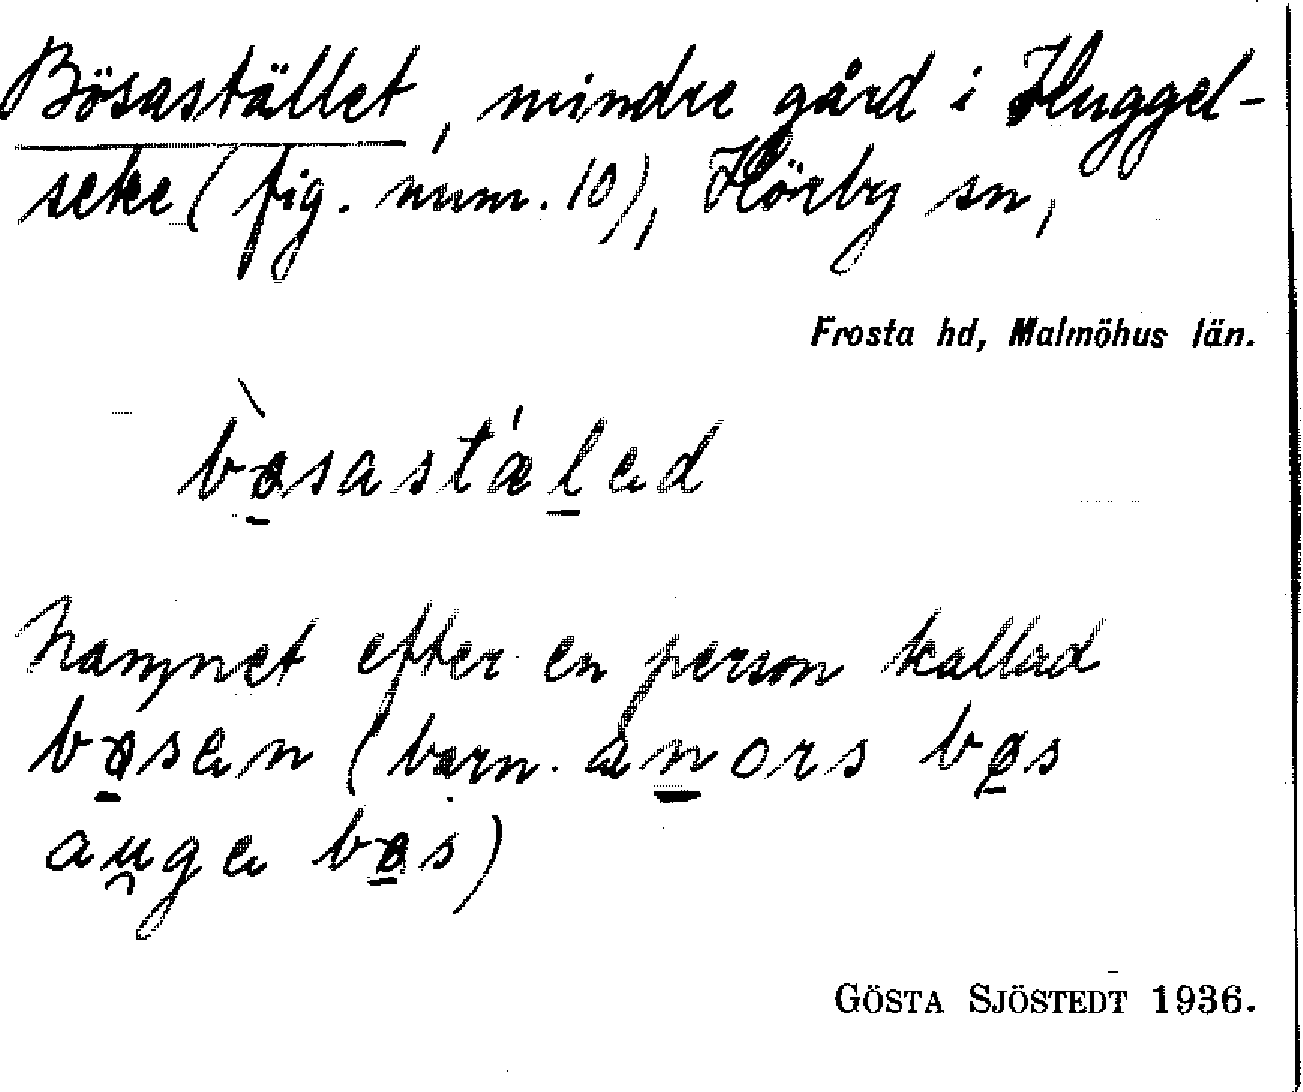 Bösastället, mindre gård i Huggel-
seke (fig. num. 10), Hörby sn,
Frosta hd, Malmöhus län.
bø̠sastæl̠ed
Namnet efter en person kallad
bø̠sen (barn. an̠ors bø̠s
au̯ge bø̠s)
GÖSTA SJÖSTEDT 1936.